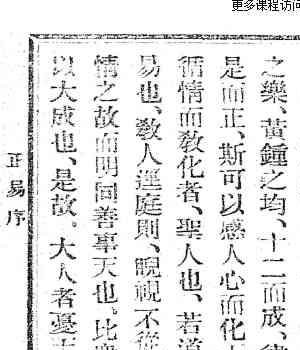 更多课程访问
之樂、黃鍾之均、十二而成、律
是而正、斯可以感人心而化
循情而敎化者、聖人也、若
易也、敎人逕庭則、睨視不從
情之故而明同善事天也、比
以大成也、是故、大人者憂
正易序